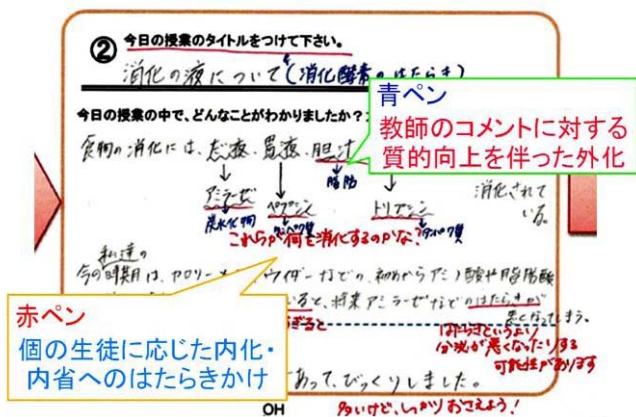 ② 今日の授業のタイトルをつけて下さい。
消化の液について(消化酵素のはたらき)
今日の授業の中で、どんなことがわかりましたか?
青ペン
教師のコメントに対する
質的向上を伴った外化
食物の消化には、だ液、胃液、胆汁
脂肪
アミラーゼ ペプシン トリプシン
消化されて
いる。
炭水化物 タンパク質 タンパク質
これらが何を消化するのかな?
私達の
今の時期は、カロリー ウイダーなどの、初めからアミノ酸や脂肪酸
ると、将来アミラーゼなどのはたらきが
悪くなってしまう。
赤ペン
個の生徒に応じた内化・
内省へのはたらきかけ
ぎると
はたらきというより
分泌が悪くなったりする
可能性があります
あって、びっくりしました。
OH
多いけど、しっかりおさえよう!